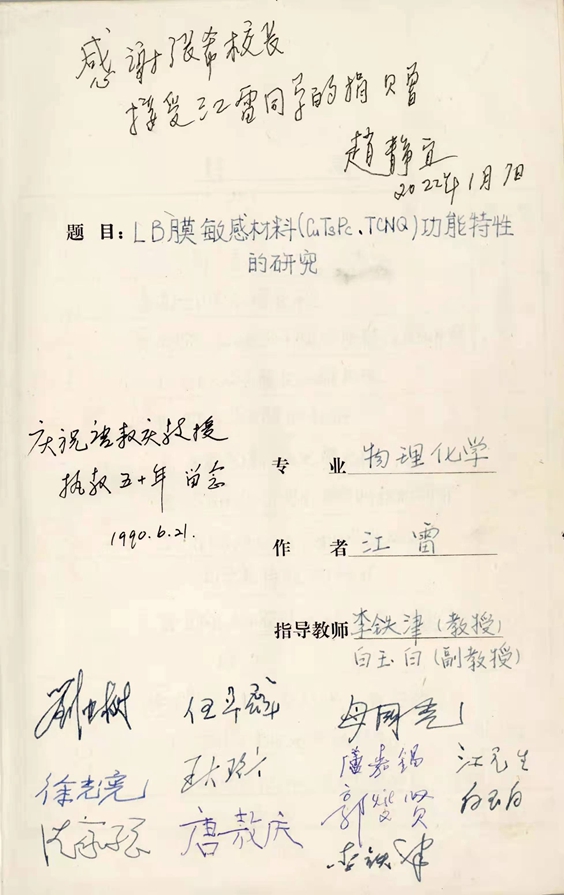 感谢张希校长
接受江雷同学的捐贝曾
趙静宜
2022年1月7日
题 目：LB膜敏感材料(CuTsPc、TCNQ)功能特性
的研究
庆祝唐敖庆教授
执教五十年 留念
1990.6.21.
专 业 物理化学
作 者 江雷
指导教师 李铁津(教授)
白玉白(副教授)
劉若樹
任平群
母国光
徐光宪
盧嘉錫
江元生
郭燮贤
白玉白
沈家骢
唐敖庆
李铁津